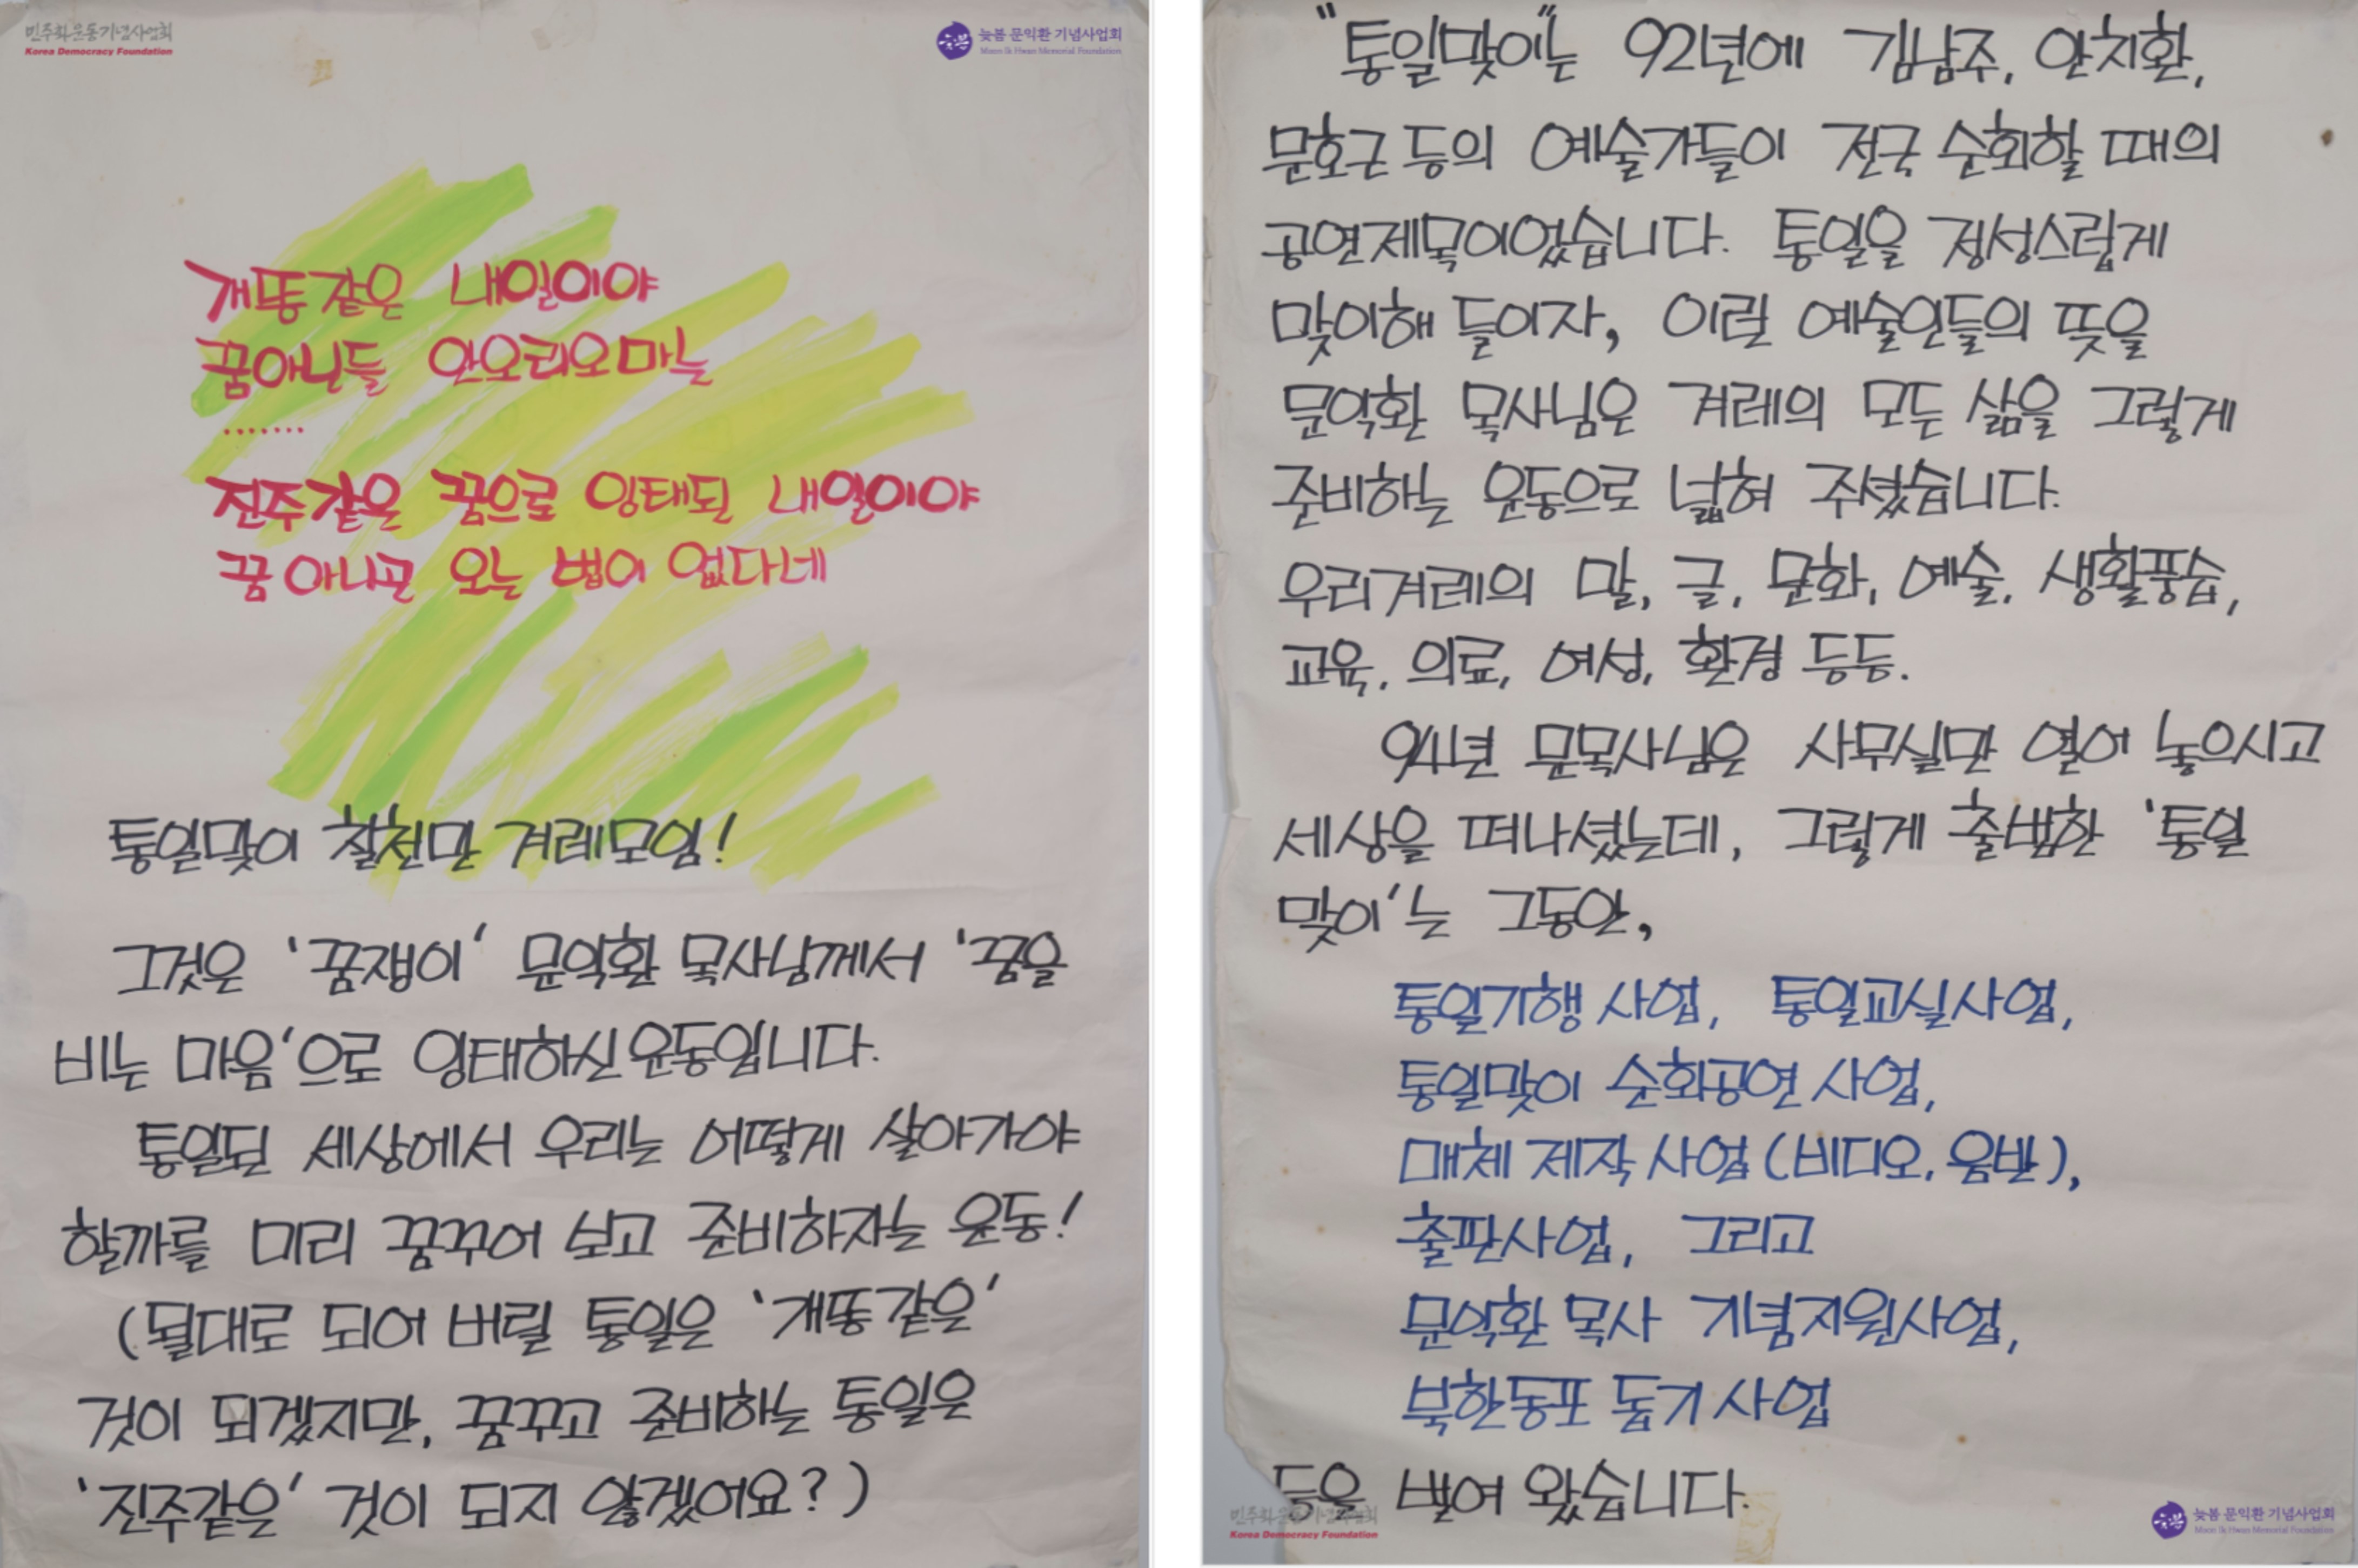 민주화운동기념사업회
Korea Democracy Foundation
늦봄 문익환 기념사업회
Moon Ik Hwan Memorial Foundation
개똥같은 내일이야
꿈아닌들 안오리오마는
.......
진주같은 꿈으로 잉태된 내일이야
꿈 아니곤 오는 법이 없다네
통일맞이 칠천만 겨레모임!
그것은 '꿈쟁이' 문익환 목사님께서 '꿈을
비는 마음'으로 잉태하신 운동입니다.
통일된 세상에서 우리는 어떻게 살아가야
할까를 미리 꿈꾸어 보고 준비하자는 운동!
(될대로 되어 버릴 통일은 '개똥같은'
것이 되겠지만, 꿈꾸고 준비하는 통일은
'진주같은' 것이 되지 않겠어요?)
"통일맞이"는 92년에 김남주, 안치환,
문호근 등의 예술가들이 전국 순회할 때의
공연제목이었습니다. 통일을 정성스럽게
맞이해 들이자, 이런 예술인들의 뜻을
문익환 목사님은 겨레의 모든 삶을 그렇게
준비하는 운동으로 넓혀 주셨습니다.
우리겨레의 말, 글, 문화, 예술, 생활풍습,
교육, 의료, 여성, 환경 등등.
94년 문목사님은 사무실만 열어 놓으시고
세상을 떠나셨는데, 그렇게 출범한 '통일
맞이'는 그동안,
통일기행 사업, 통일교실사업,
통일맞이 순회공연 사업,
매체 제작 사업 (비디오, 음반),
출판사업, 그리고
문익환 목사 기념지원사업,
북한동포 돕기 사업
등을 벌여 왔습니다.
민주화운동기념사업회
Korea Democracy Foundation
늦봄 문익환 기념사업회
Moon Ik Hwan Memorial Foundation